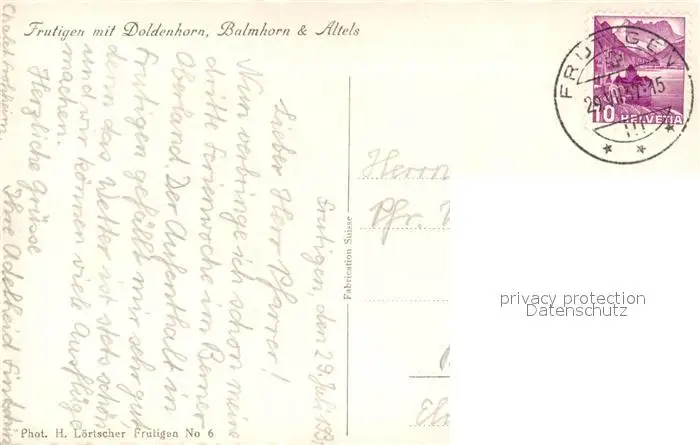 Frutigen mit Doldenhorn, Balmhorn & Altels
FRUTIGEN
29.VII.37.15
10 HELVETIA
Frutigen, den 29. Juli 1937
Lieber Herr Pfarrer!
Nun verbringe ich schon meine
dritte Ferienwoche im Berner
Oberland. Der Aufenthalt in
Frutigen gefällt mir sehr gut
denn das Wetter ist stets schön
und wir können viele Ausflüge
machen.
Herzliche Grüsse
Ihre Adelheid
Chalet
Herrn
Pfr.
Fabrication Suisse
Phot. H. Lörtscher Frutigen No 6
privacy protection
Datenschutz